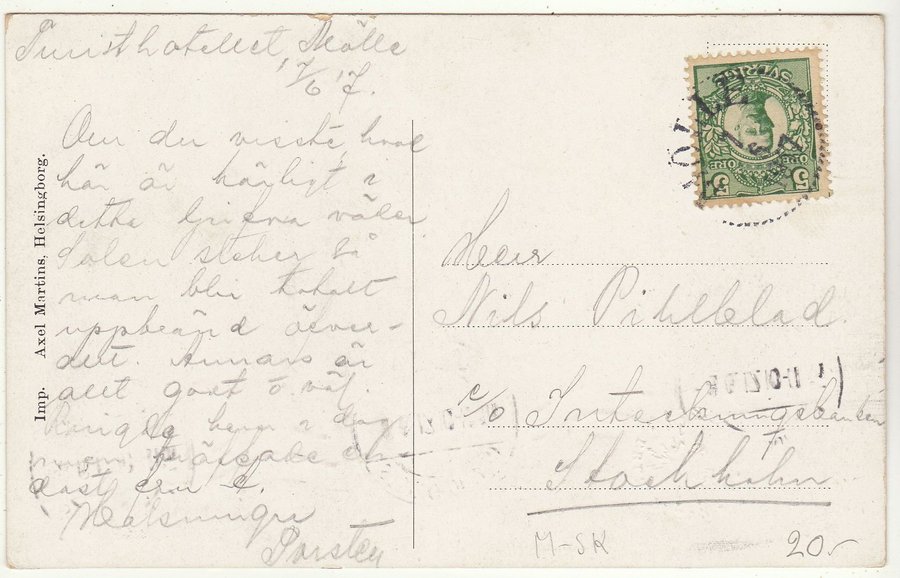 Turisthotellet, Mölle
17/6 '17.
Om du visste hvad
här är härligt i
detta ljufva väder
Solen steker så
man blir totalt
uppbränd öfver-
allt. Annars är
allt godt o väl.
hem i dag
Helsningar
Torsten
Imp. Axel Martins, Helsingborg.
MÖLLE
SVERIGE
5 ÖRE 5
Herr
Nils Pihlblad.
c/o Inteckningsbanken
Stockholm
M-SK
20:-